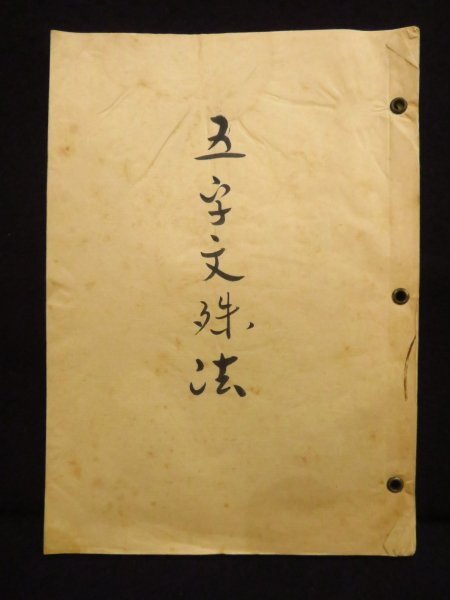 五字文殊法